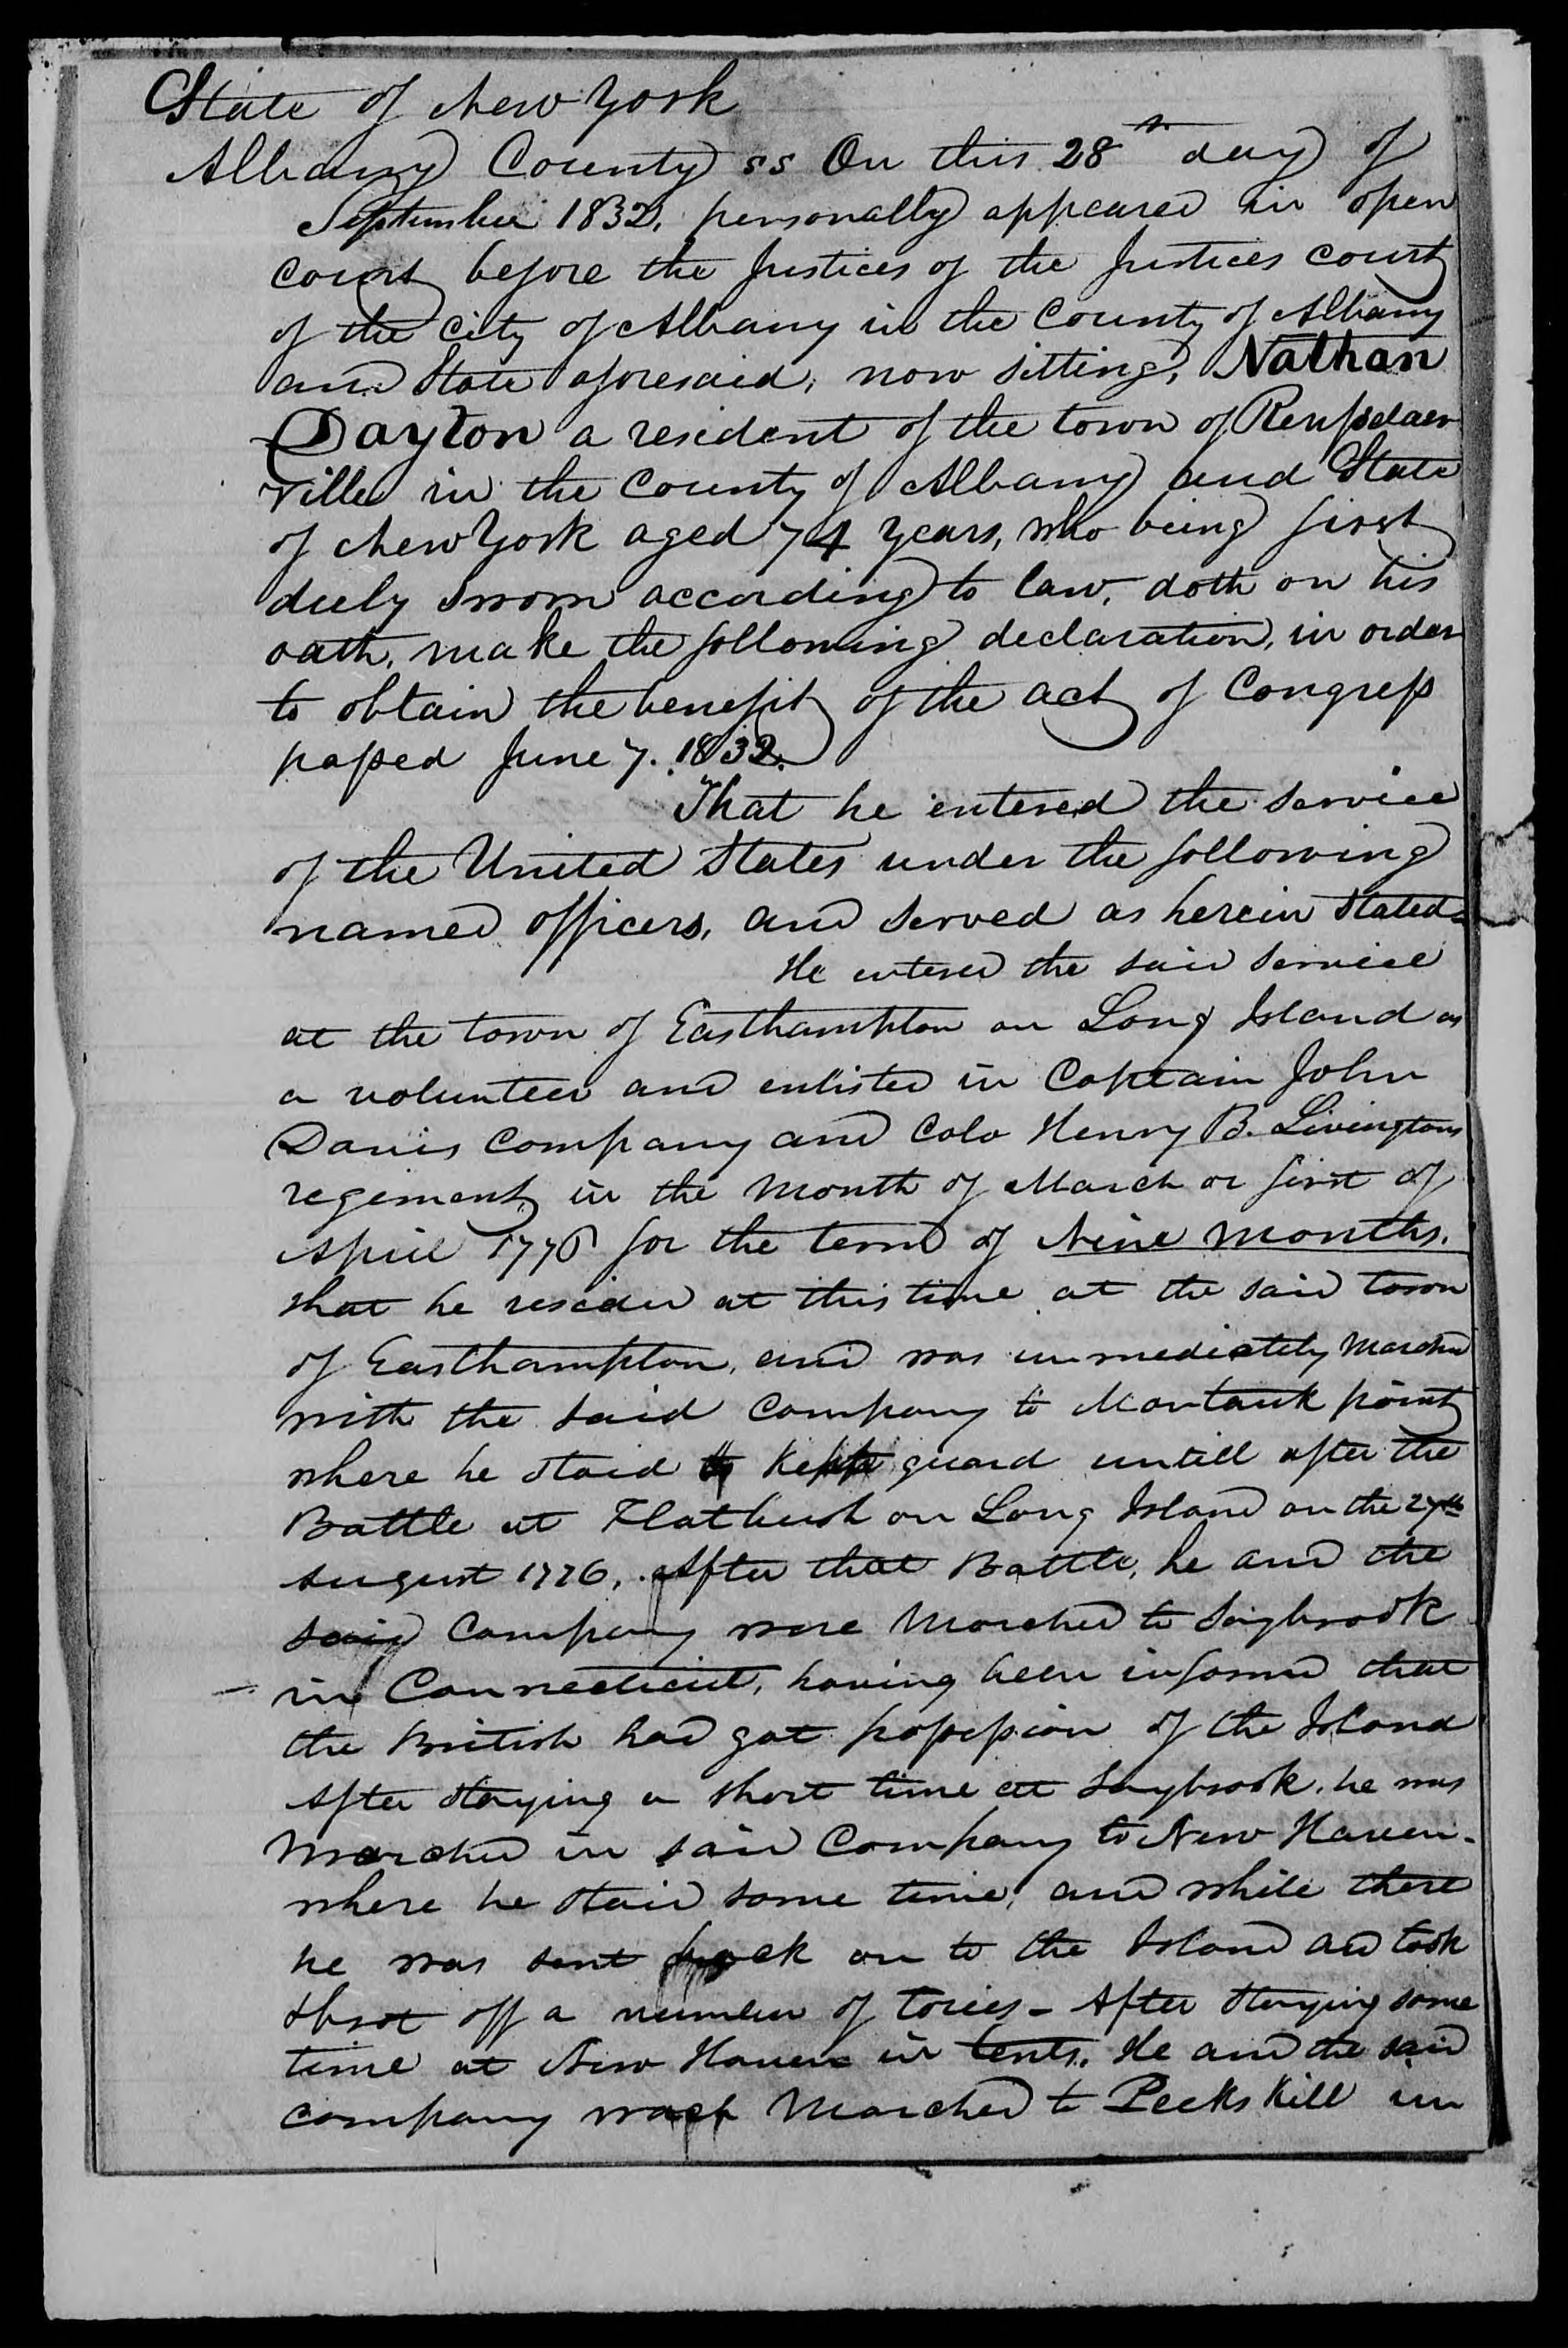 State of New York
Albany County ss On this 28th day of
September 1832, personally appeared in open
court before the Justices of the Justices court
of the city of Albany in the County of Albany
and State aforesaid, now sitting, Nathan
Dayton a resident of the town of Rensselaer
ville in the County of Albany and State
of New York aged 74 years, who being first
duly sworn according to law, doth on his
oath, make the following declaration, in order
to obtain the benefit of the act of Congress
passed June 7. 1832.
That he entered the service
of the United States under the following
named officers, and served as herein stated
He entered the said service
at the town of Easthampton on Long Island as
a volunteer and enlisted in Captain John
Davis company and Colo Henry B. Livingtons
regement in the month of March or first of
April 1776 for the term of Nine months.
that he resided at this time at the said town
of Easthampton, and was immediately marched
with the said company to Montauk point
where he staid & kept guard untill after the
Battle at Flatbush on Long Island on the 27th
August 1776, After that Battle, he and the
said Company were marched to Saybrook
in Connecticut, having been informed that
the British had got possession of the Island
After staying a short time at Saybrook, he was
marched in said Company to New Haven.
where he staid some time, and while there
he was sent back on to the Island and took
off a number of tories - After staying some
time at New Haven in tents. He and the said
company was marched to Peekskill in